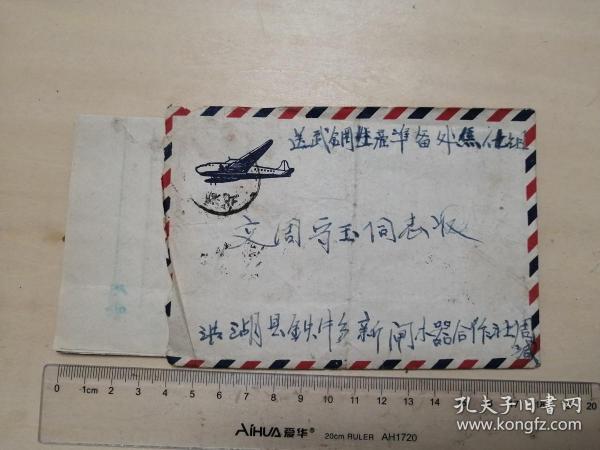 送武钢生产准备处焦化组
交周守玉同志收
洪湖县铁牛乡新闸水器合作社周
缄
0 1cm 2 3 4 5 6 7 8 9 10 11 12 13 14 15 16 17 18 19 20
AIHUA爱华® 20cm RULER AH1720
孔夫子旧书网
www.kongfz.com